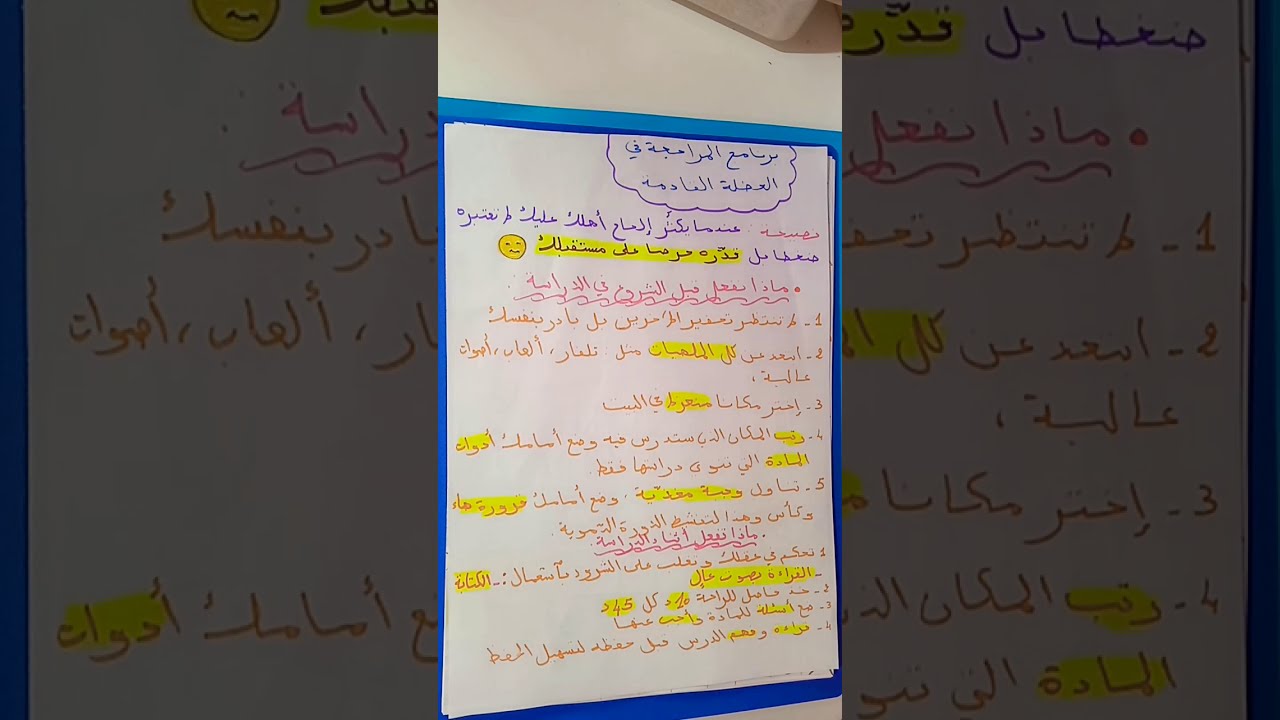 برنامج المراجعة في
العطلة القادمة
نصيحة : عندما يكثر إلحاح أهلك عليك لا تعتبره
ضغطا بل قدّره حرصا على مستقبلك
• ماذا نفعل قبل الشروع في الدراسة :
1 - لا تنتظر تحفيز الآخرين بل بادر بنفسك
2 - ابتعد عن كل الملهيات مثل : تلفاز ، ألعاب ، أصوات
عالية ،
3 - إختر مكانا منعزلا في البيت
4 - رتب المكان الذي ستدرس فيه وضع أمامك أدوات
المادة التي تنوي دراستها فقط.
5 - تناول وجبة مغذّية ، وضع أمامك قرورة ماء
وكأس وهذا لتنشط الدورة الدموية.
• ماذا تفعل أثناء الدراسة :
1 تحكم في عقلك وتغلب على الشرود بآستعمال : - الكتابة
- القراءة بصوت عال
2 - خذ فاصل للراحة 10د كل 45د
3 - ضع أسئلة للمادة وأجب عنها
4 - قراءة وفهم الدرس قبل حفظه لتسهيل الحفظ